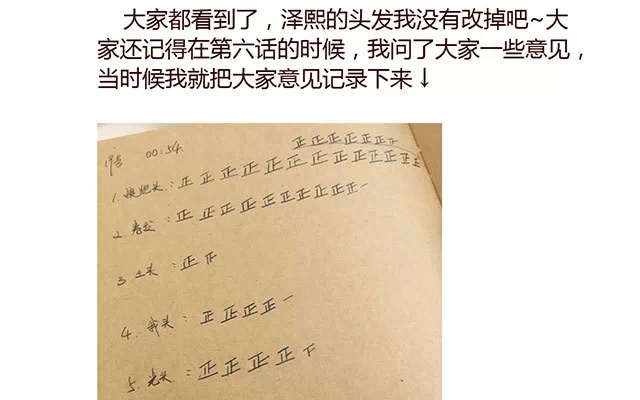 大家都看到了，泽熙的头发我没有改掉吧~大
家还记得在第六话的时候，我问了大家一些意见，
当时候我就把大家意见记录下来↓
00:54.
正正正正正正正
1. 头：正正正正正正正正正正正正正
2. 卷发：正正正正正正正正正正一
3. 头：正
4. 头：正正正正一
5. 光头：正正正正下